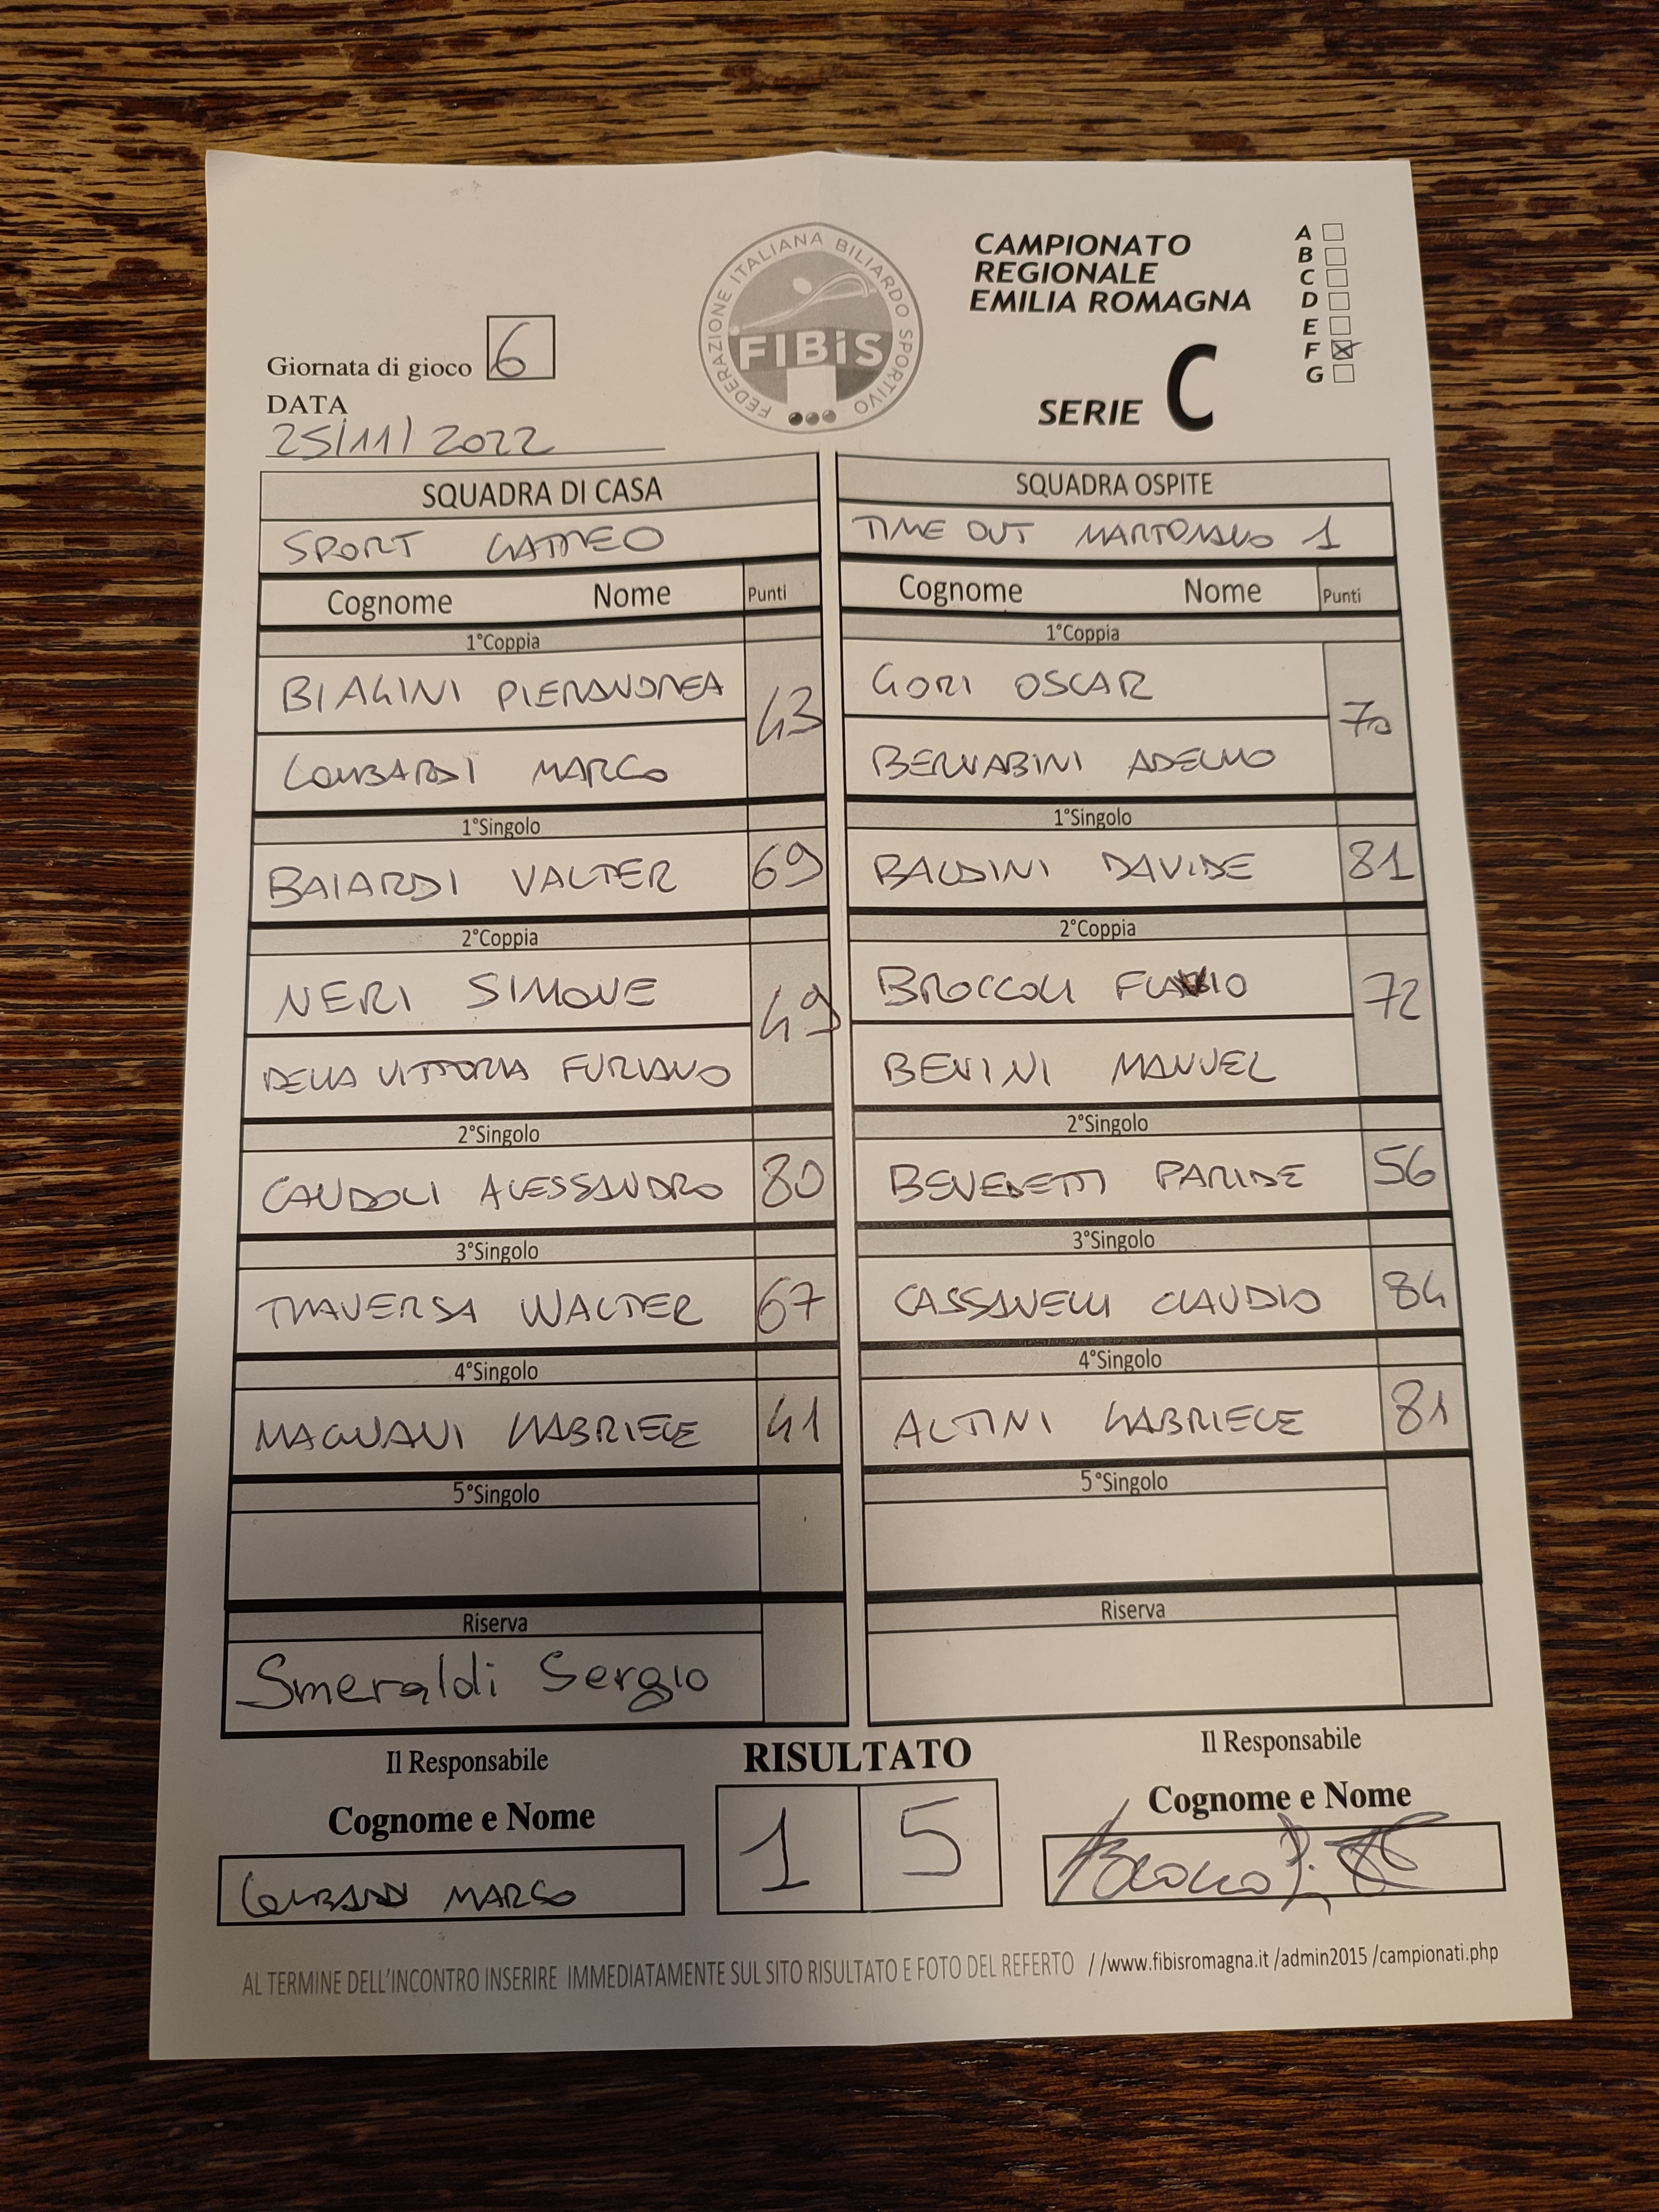 FEDERAZIONE ITALIANA BILIARDO SPORTIVO
FIBiS
CAMPIONATO
REGIONALE
EMILIA ROMAGNA
SERIE C
A
B
C
D
E
F X
G
Giornata di gioco 6
DATA
25/11/2022
SQUADRA DI CASA
SPORT GATTEO
Cognome Nome Punti
1°Coppia
BIAGINI PIERANDREA 43
LOMBARDI MARCO
1°Singolo
BAIARDI VALTER 69
2°Coppia
NERI SIMONE 49
DELLA VITTORIA FURIANO
2°Singolo
CANDOLI ALESSANDRO 80
3°Singolo
TRAVERSA WALTER 67
4°Singolo
MAGNANI GABRIELE 41
5°Singolo
Riserva
Smeraldi Sergio
SQUADRA OSPITE
TIME OUT MARTORANO 1
Cognome Nome Punti
1°Coppia
GORI OSCAR 70
BERNABINI ADELMO
1°Singolo
BALDINI DAVIDE 81
2°Coppia
BROCCOLI 72
BENINI MANUEL
2°Singolo
BENEDETTI PARIDE 56
3°Singolo
CASSANELLI CLAUDIO 84
4°Singolo
ALTINI GABRIELE 81
5°Singolo
Riserva
Il Responsabile
Cognome e Nome
LOMBARDI MARCO
RISULTATO
1 5
Il Responsabile
Cognome e Nome
AL TERMINE DELL'INCONTRO INSERIRE IMMEDIATAMENTE SUL SITO RISULTATO E FOTO DEL REFERTO //www.fibisromagna.it /admin2015 /campionati.php